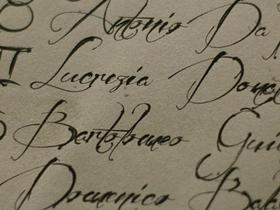 Antonio Da
II Lucrezia Dona
Bartolomeo Gui
Domenico Bal